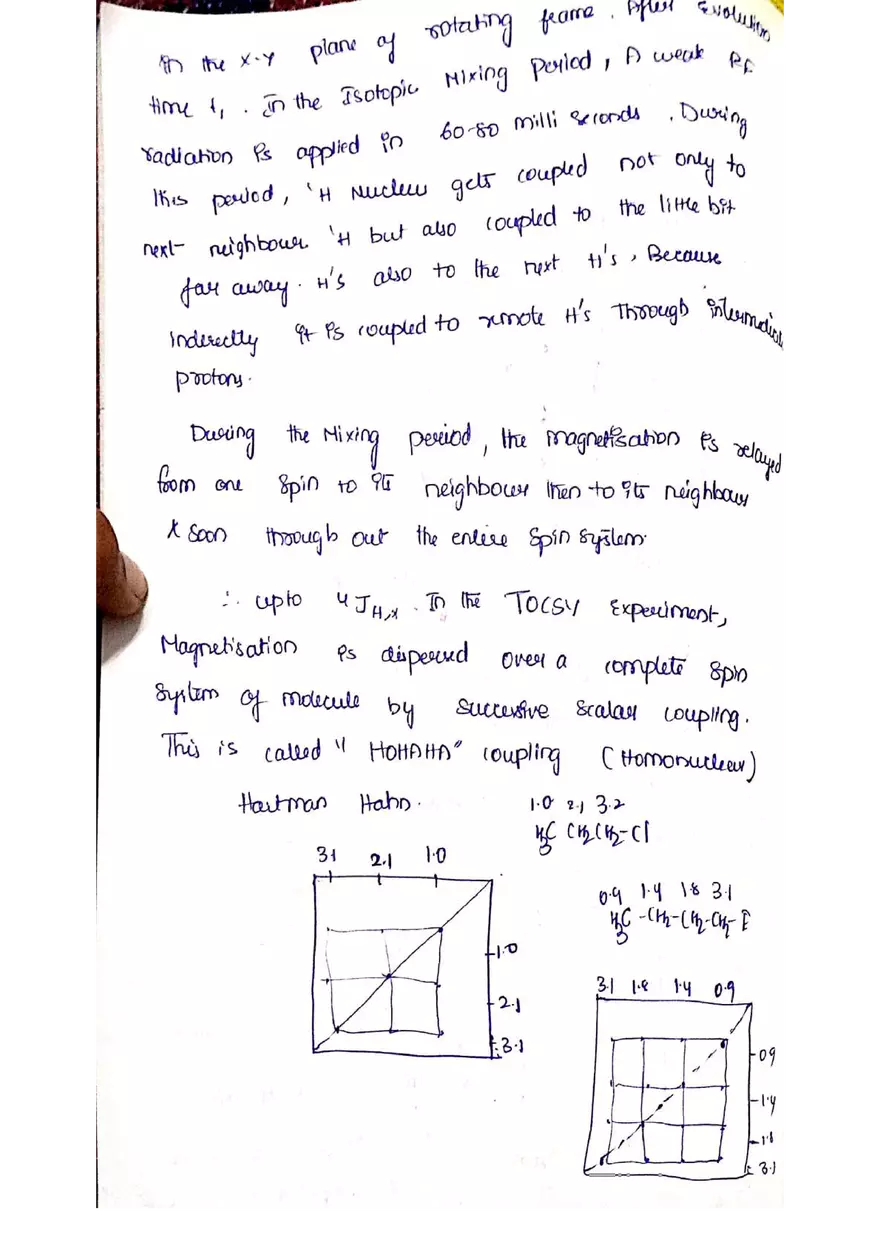 in the x-y plane of rotating frame. After Evolution
time t₁. In the Isotopic Mixing Period, A weak RF
radiation is applied in 60-80 milli seconds. During
this period, ¹H Nucleus gets coupled not only to
next neighbour ¹H but also coupled to the little bit
far away. H's also to the next H's, Because
Inderectly it is coupled to remote H's Through intermediate
protons.
During the Mixing period, the magnetisation is relayed
from one spin to its neighbour then to its neighbour
& soon through out the entire spin system.
∴ upto 4 J H,x. In the TOCSY Experiment,
Magnetisation is dispersed over a complete spin
system of molecule by successive scalar coupling.
This is called "HOHAHA" coupling (Homonuclear)
Hartman Hahn.
1.0 2.1 3.2
H₃C CH₂CH₂-Cl
3.1 2.1 1.0
1.0
2.1
3.1
0.9 1.4 1.8 3.1
H₃C-CH₂-CH₂-CH₂-I
3.1 1.8 1.4 0.9
0.9
1.4
1.8
3.1